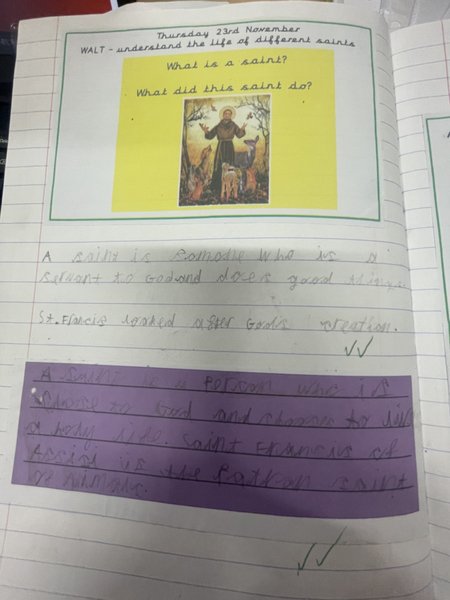 Thursday 23rd November
WALT - understand the life of different saints
What is a saint?
What did this saint do?
A saint is somone who is a
servant to God and does good things.
St. Francis looked after Gods creation.
A saint is a person who is
close to God and chooses to live
a holy life. Saint Francis of
is the Patron saint
of Animals.